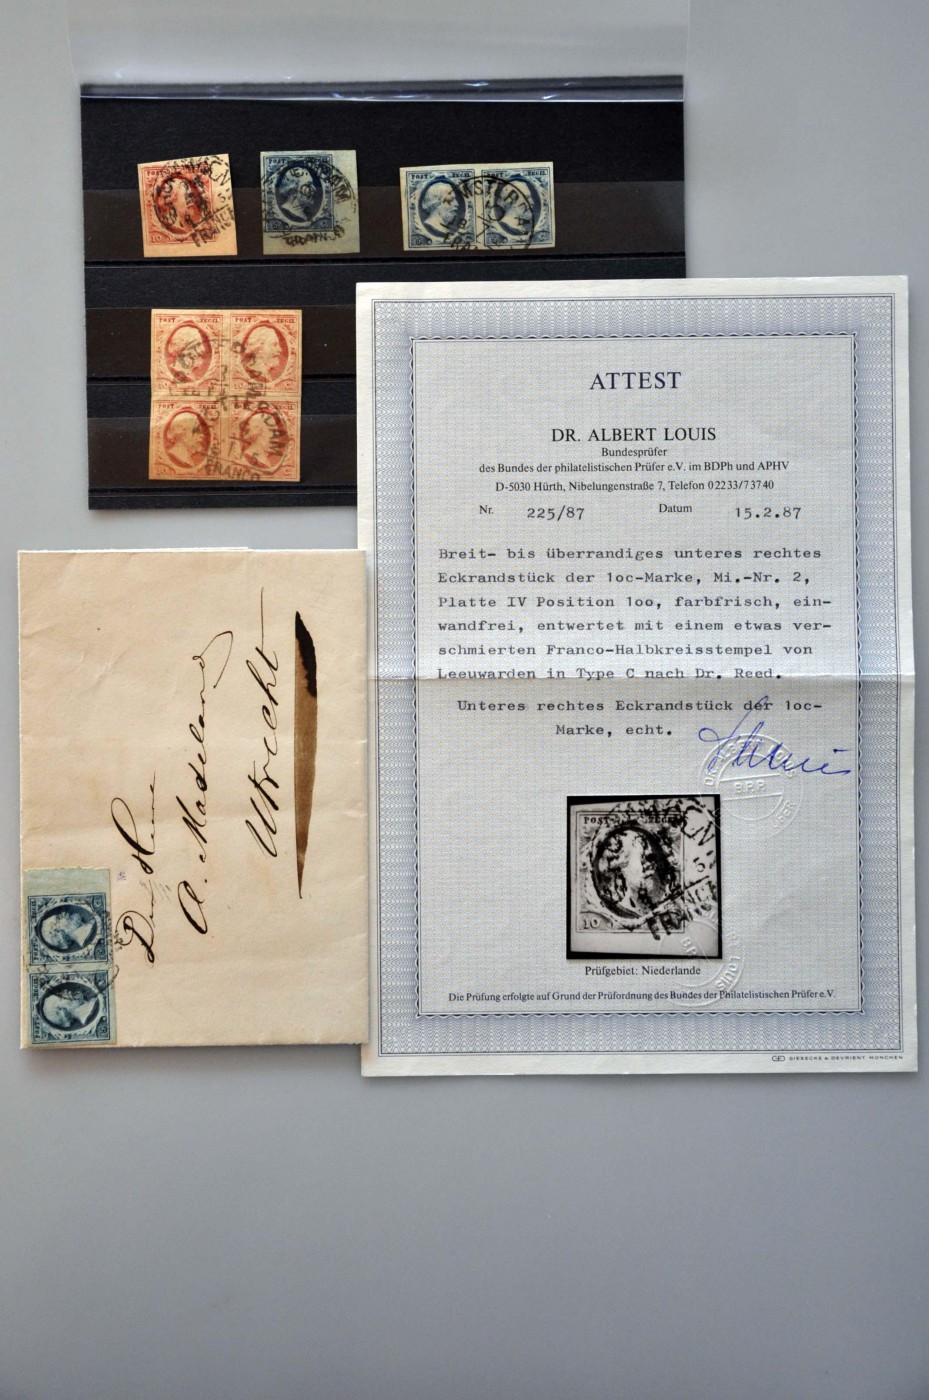 POST ZEGEL
FRANCO
POST ZEGEL
POST ZEGEL
POST ZEGEL
POST ZEGEL
POST ZEGEL
10
10
FRANCO
ATTEST
DR. ALBERT LOUIS
Bundesprüfer
des Bundes der philatelistischen Prüfer e.V. im BDPh und APHV
D-5030 Hürth, Nibelungenstraße 7, Telefon 02233/73740
Nr. 225/87 Datum 15.2.87
Breit- bis überrandiges unteres rechtes
Eckrandstück der 1oc-Marke, Mi.-Nr. 2,
Platte IV Position 1oo, farbfrisch, ein-
wandfrei, entwertet mit einem etwas ver-
schmierten Franco-Halbkreisstempel von
Leeuwarden in Type C nach Dr. Reed.
Unteres rechtes Eckrandstück der 1oc-
Marke, echt.
B.P.P.
POST ZEGEL
10
FRANC
Prüfgebiet: Niederlande
Die Prüfung erfolgte auf Grund der Prüfordnung des Bundes der Philatelistischen Prüfer e.V.
GIESECKE & DEVRIENT MÜNCHEN
A. Madeland
Utrecht